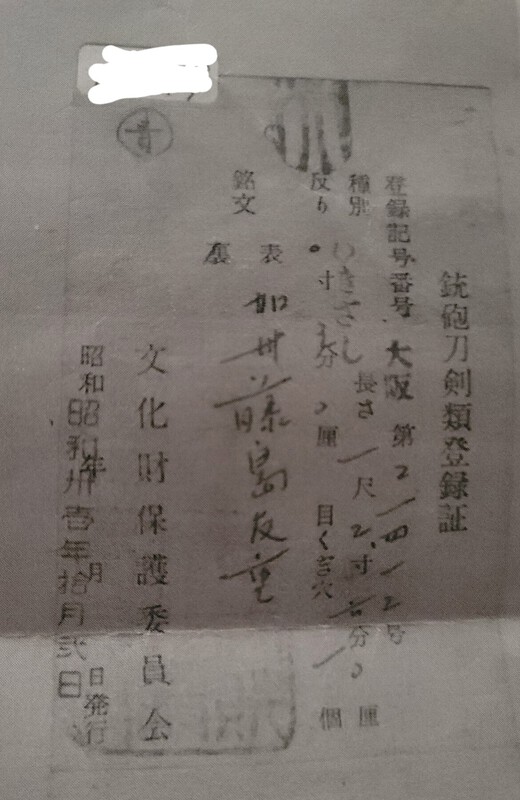 銃砲刀剣類登録証
登録記号番号 大阪 第2一四一2号
種別 わきざし 長さ 一尺2寸 分0厘
反り 0寸 分0厘 目くぎ穴 一個
銘文 表 加州藤島友重
裏
文化財保護委員会
昭和 年 月 日発行
昭和卅壱年拾月弐日